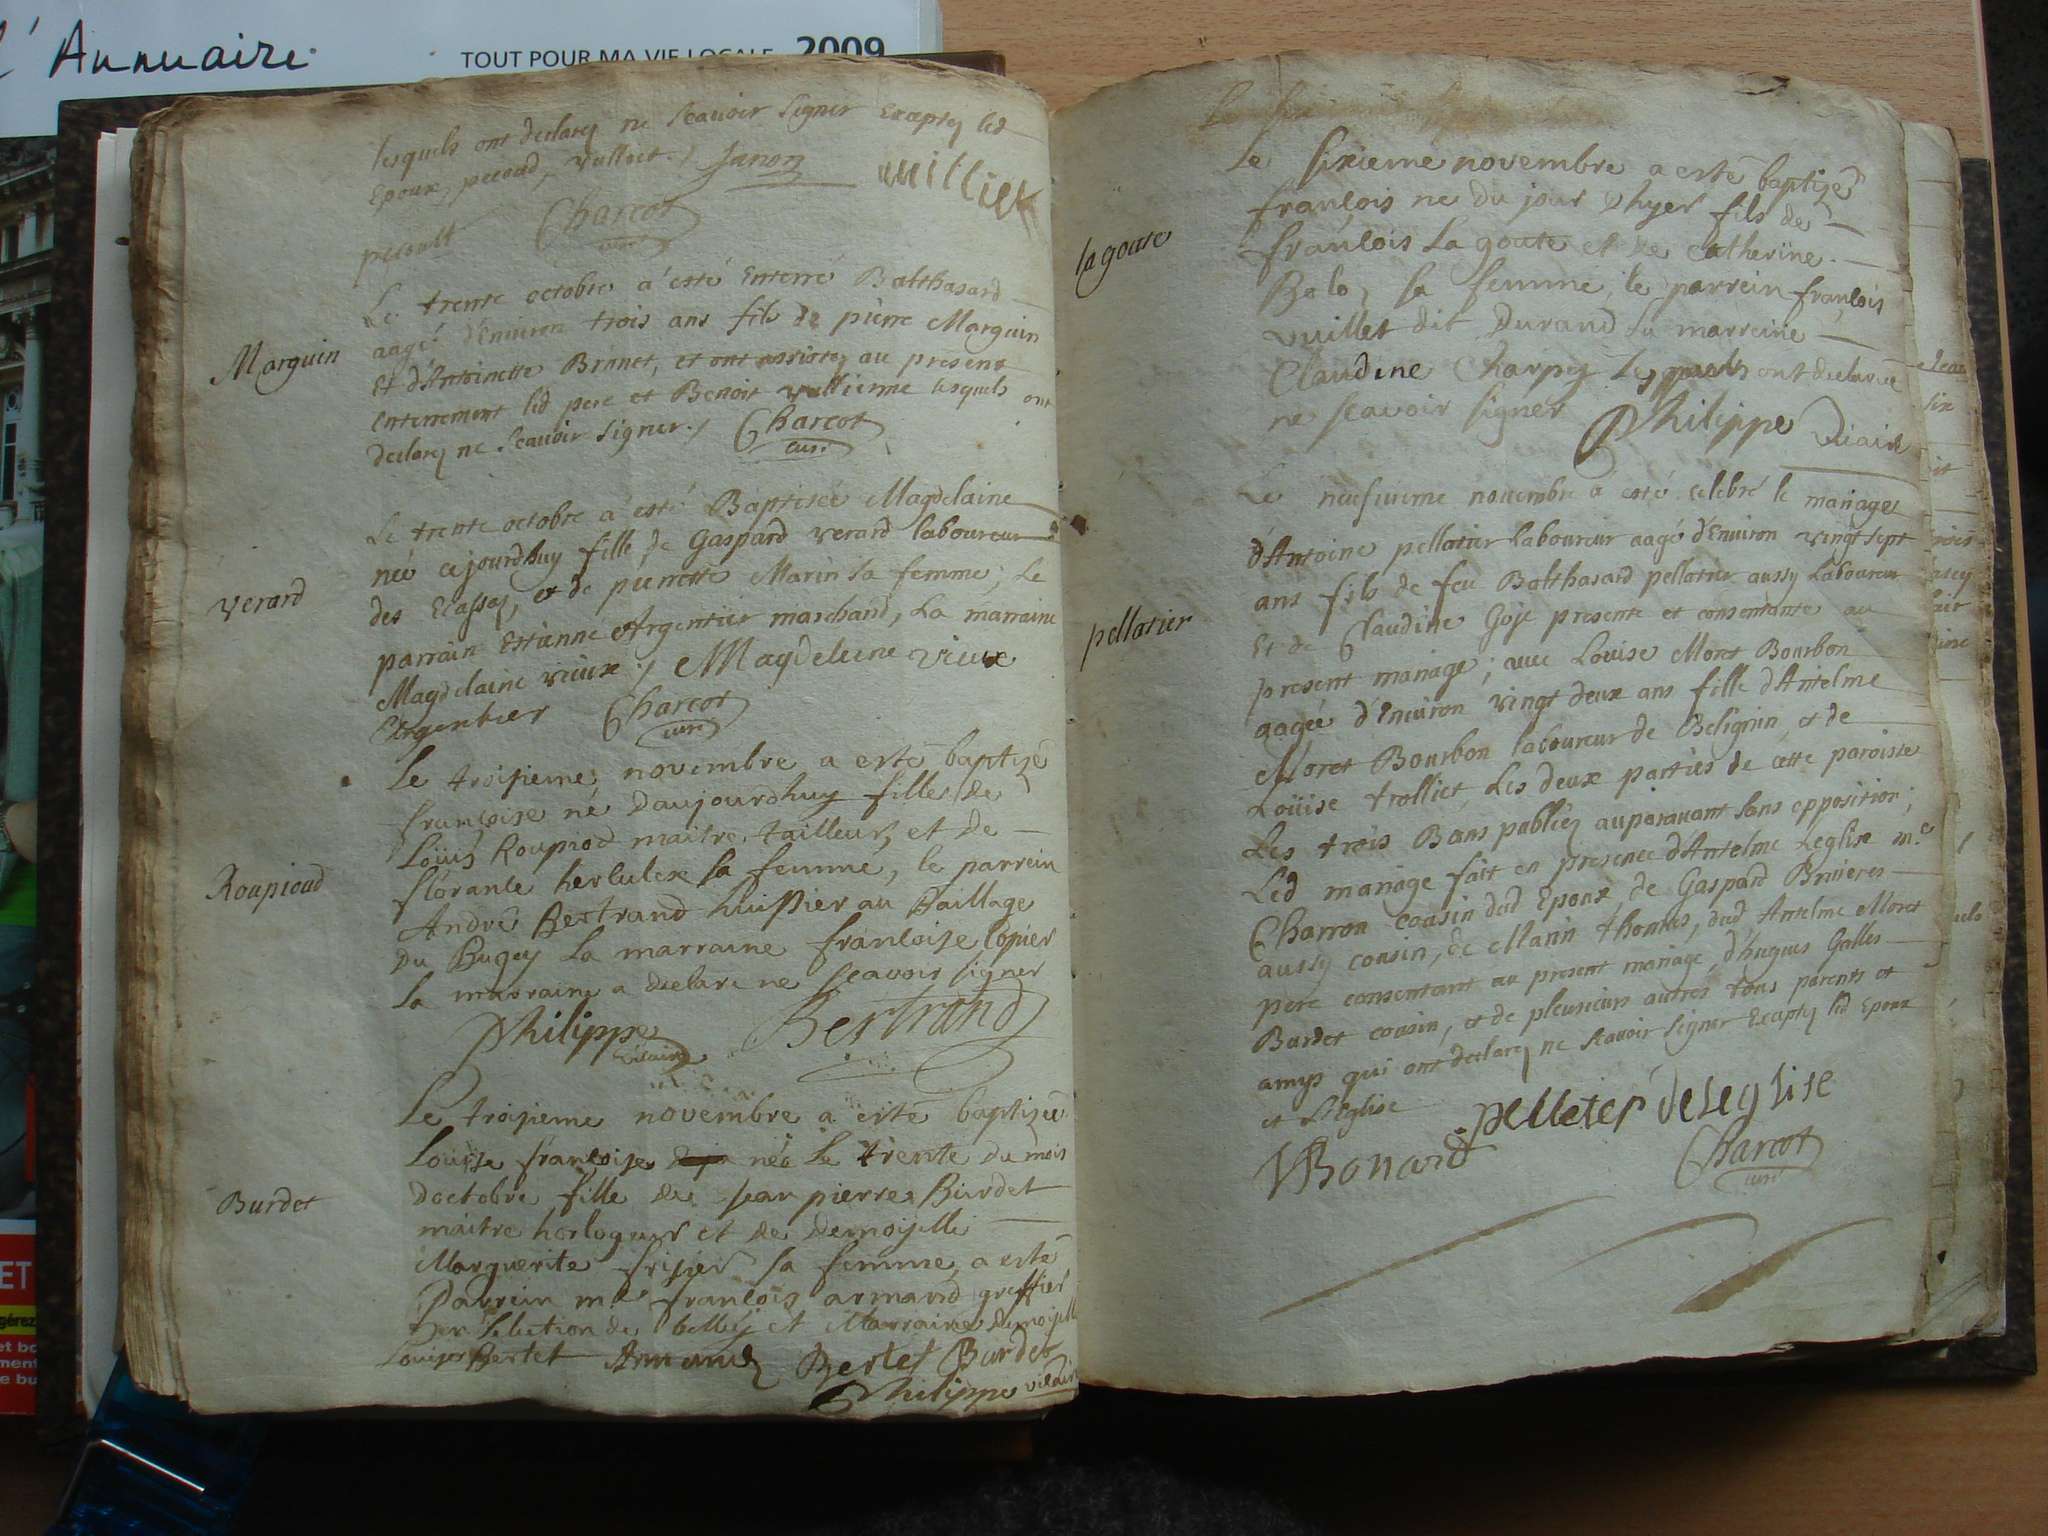 l'Annuaire
TOUT POUR MA VIE LOCALE 2009
lesquels ont declarez ne scavoir signer Exceptez led
Epoux, peroud, vulliet ./ Janon vuilliet
peroult Charcot curé
Marguin
Le trente octobre a esté Enterré Balthasard
aagé d'Environ trois ans fils de pierre Marguin
Et d'Antoinette Brunet, et ont assistez au present
Enterrement led pere et Benoit vullierme lesquels ont
declarez ne scavoir signer ./ Charcot
curé
verard
Le trente octobre a esté Baptisée Magdelaine
née cejourdhuy fille de Gaspard verard laboureur
des Ecassaz, et de pierrette Marin sa femme; Le
parrain Estienne Argentier marchand, La marraine
Magdelaine vieux ./ Magdeleine vieux
Argentier Charcot
curé
Roupioud
Le troisieme novembre a esté baptizé
françoise né Daujourdhuy fille de
Loüis Roupiod maitre tailleur, et de
florante herlulex sa femme, le parrein
André Bertrand huissier au Baillage
du Bugey La marraine françoise Copier
La marraine a declaré ne scavoir signer
Philippe vicaire Bertrand
Burdet
Le troisieme novembre a esté baptizée
Louise françoise née Le trente du mois
doctobre fille de Jean pierre Burdet
maitre horlogeur et de demoiselle
Marguerite frisier sa femme, a esté
Parrein me françois armand greffier
en Lelection de belley et Marraine demoiselle
Louise Bertet Armand Bertet Burdet
Philippe vicaire
la goute
Le sixieme novembre a esté baptizé
françois ne du jour dhyer fils de
françois La goute et de Catherine
Balo, sa femme, le parrein françois
vuillet dit Durand La marreine
Claudine Charpy Les parts ont declarée
ne scavoir signer
Philippe viaire
pellatier
Le neufvieme novembre a esté celebré le mariage
d'Antoine pellatier laboureur aagé d'Environ vingt sept
ans fils de feu Balthasard pellatier aussy Laboureur
Et de Claudine Goje presente et consentante au
present mariage; avec Louise Moret Bourbon
aagée d'Environ vingt deux ans fille d'Antelme
Moret Bourbon laboureur de Belignin, et de
Loüise trolliet, Les deux parties de cette paroisse
Les trois Bans publiez auparavant sans opposition;
Led mariage fait en presence d'Antelme Leglise me
Charron cousin dud Epoux, de Gaspard Brüieres
aussy cousin, de Marin thomas, dud Antelme Moret
pere consentant au present mariage, d'hugues Galles
Burdet cousin, et de pleusieurs autres tous parents et
amys qui ont declarez ne scavoir signer Exceptez led Epoux
et L'Eglise pelleter deleglise
Bonard Charcot
curé